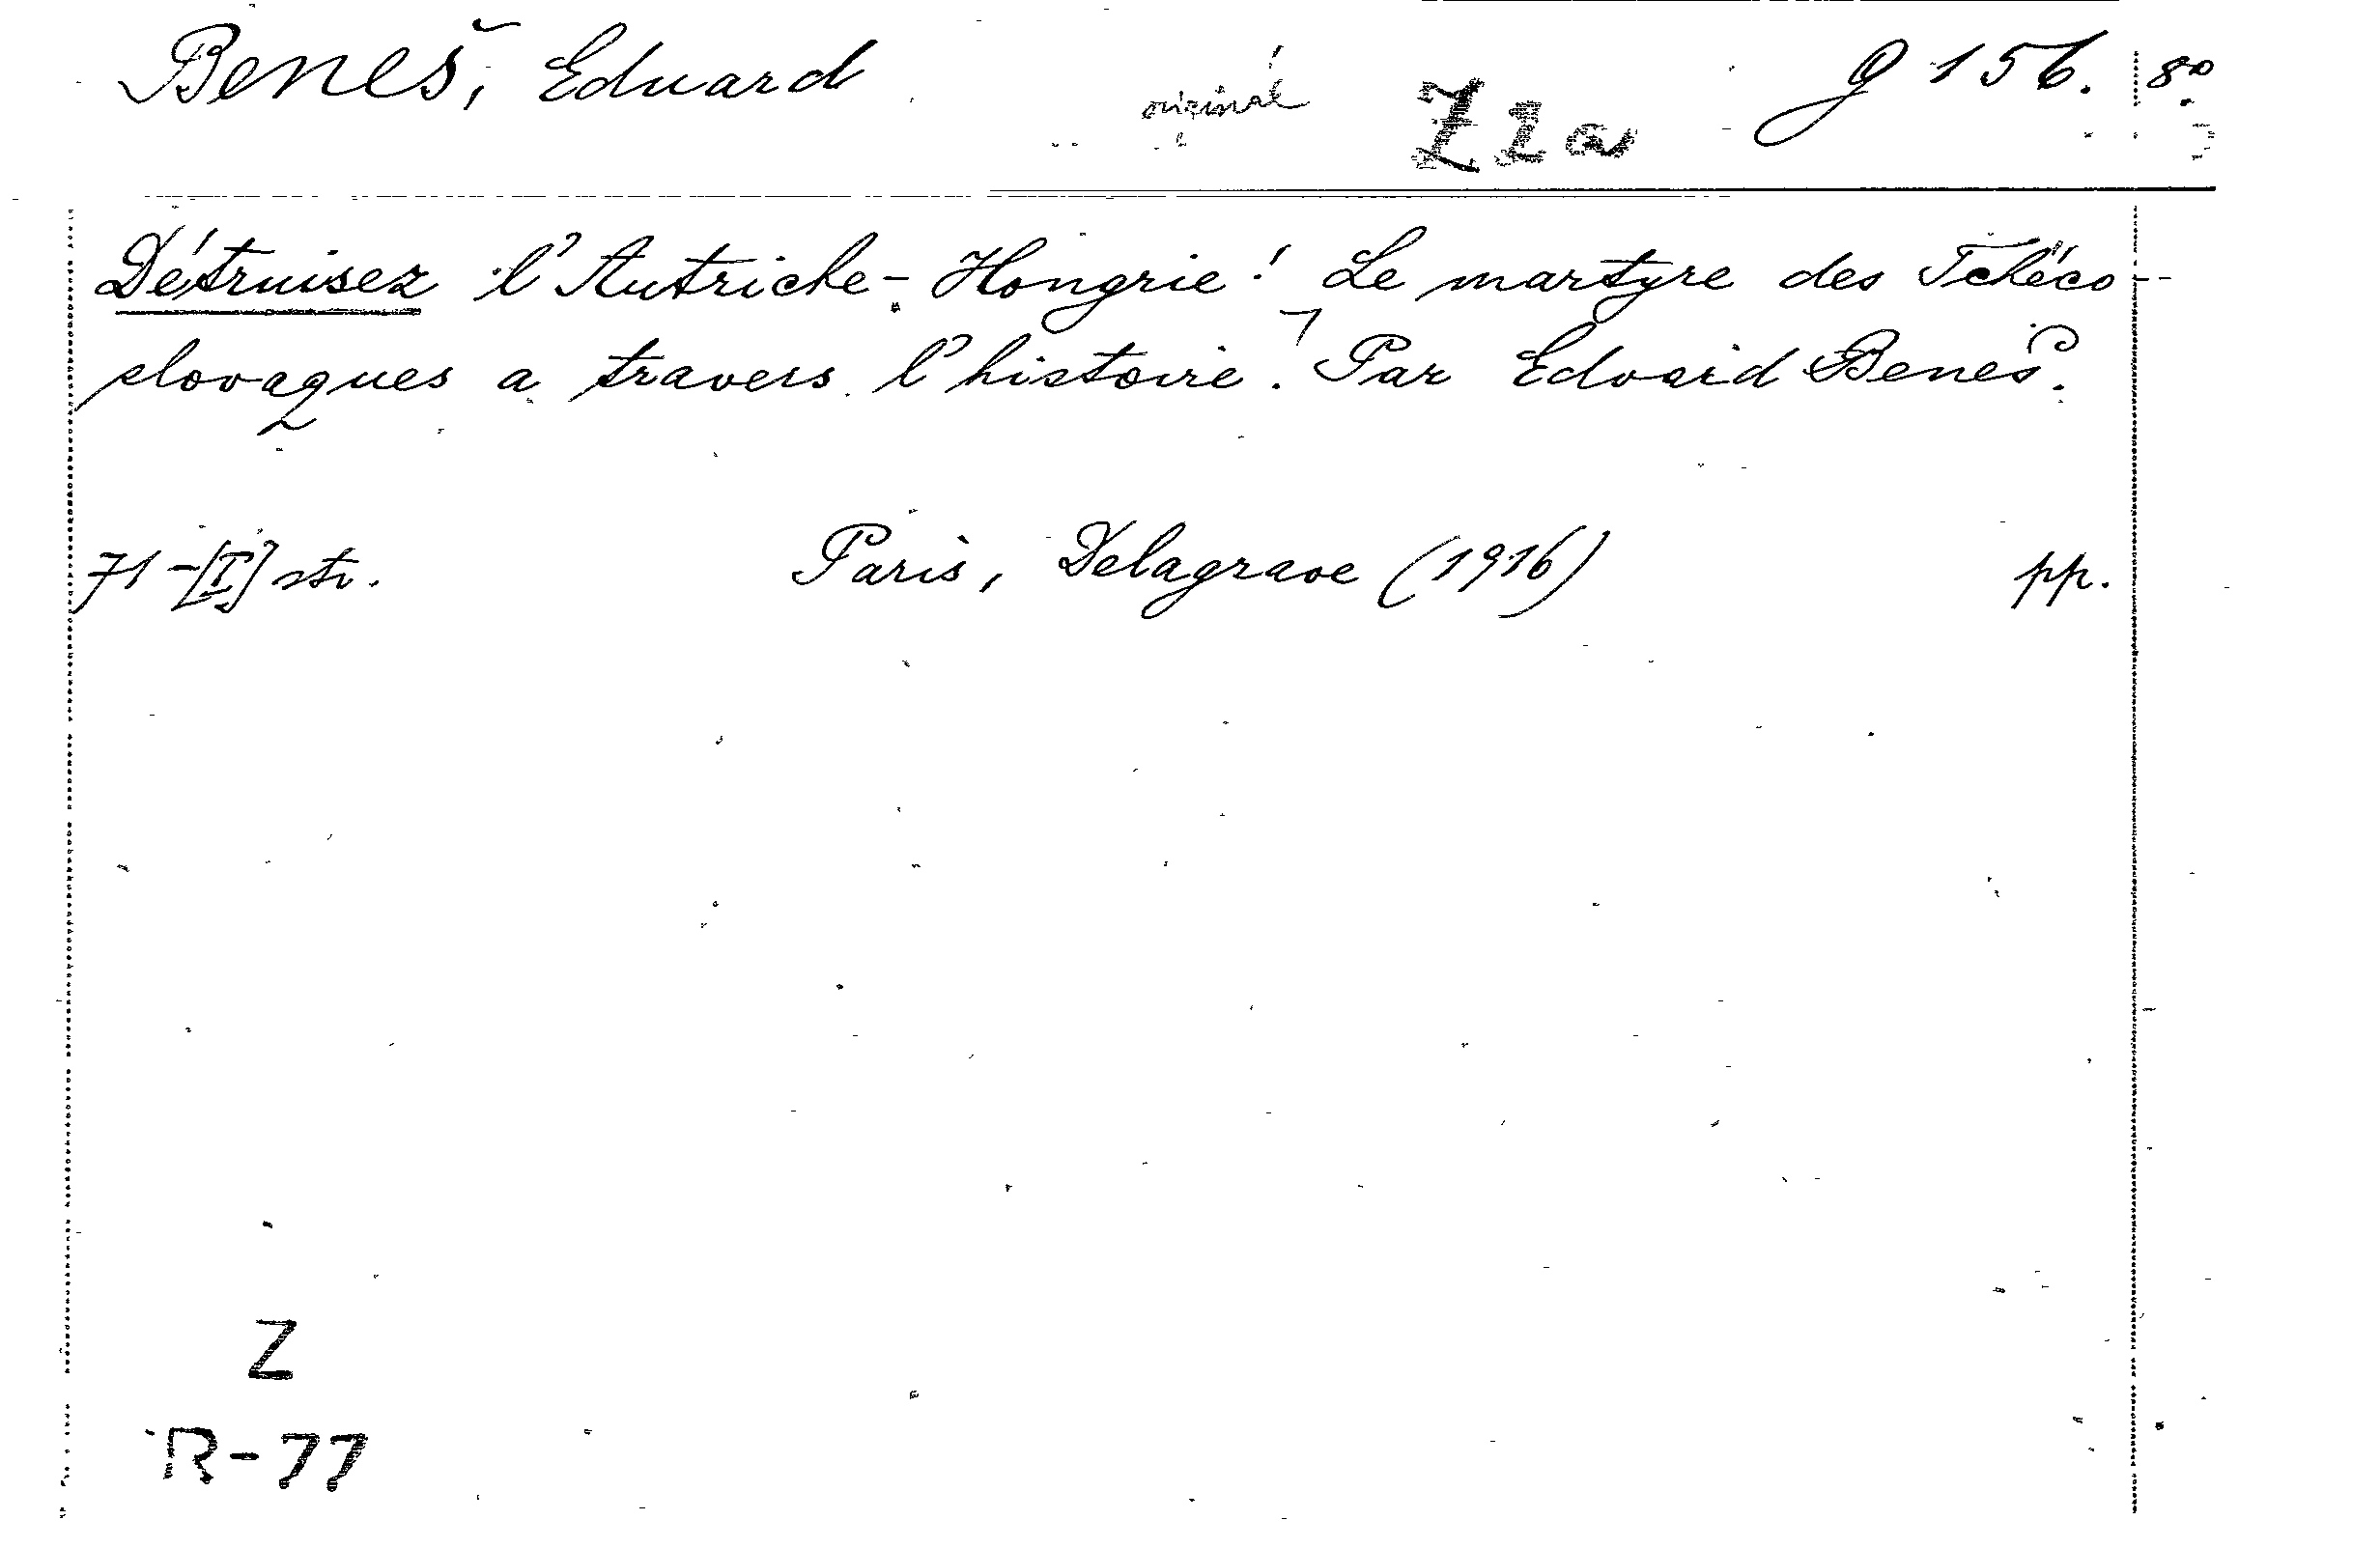 Beneš, Eduard originál Z2a g 156. 8°.
Détruisez l'Autriche-Hongrie! Le martyre des Tchéco-
slovaques a travers l'histoire. Par Edvard Beneš.
71-[I] str. Paris, Delagrave (1916) pp.
Z
R-77